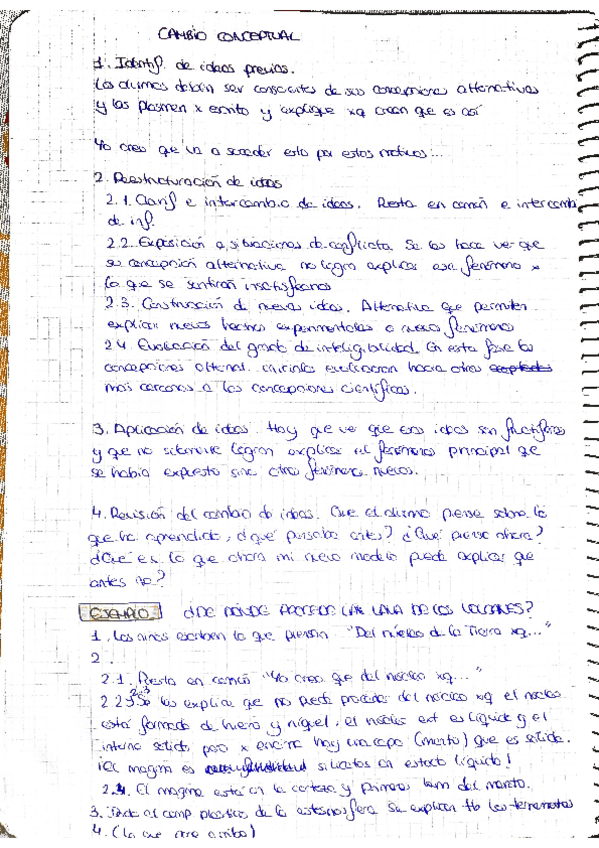 CAMBIO CONCEPTUAL
1. Identif. de ideas previas.
Los alumnos deben ser conscientes de sus concepciones alternativas
y las plasmen x escrito y explique xq creen que es así
Yo creo que va a suceder esto por estos motivos...
2. Reestructuración de ideas
2.1. Clarif e intercambio de ideas. Puesta en común e intercamb
de inf.
2.2. Exposición a situaciones de conflicto. Se les hace ver que
su concepción alternativa no logra explicar ese fenómeno x
lo que se sentirán insatisfechos
2.3. Construcción de nuevas ideas. Alternativa que permiten
explicar nuevos hechos experimentales o nuevos fenómenos
2.4 Evaluación del grado de inteligibilidad. En esta fase las
concepciones alternat. iniciales evolucionan hacia otras aceptadas
más cercanas a las concepciones científicas.
3. Aplicación de ideas. Hay que ver que esas ideas son fructíferas
y que no solamente logran explicar el fenómeno principal que
se había expuesto sino otros fenómenos nuevos.
4. Revisión del cambio de ideas. Que el alumno piense sobre lo
que ha aprendido, ¿qué pensaba antes? ¿Qué pienso ahora?
¿Qué es lo que ahora mi nuevo modelo puede explicar que
antes no?
EJEMPLO ¿DE DÓNDE PROCEDE LA LAVA DE LOS VOLCANES?
1. Los niños escriben lo que piensan "Del núcleo de la Tierra xq..."
2.
2.1. Puesta en común "Yo creo que del núcleo xq..."
2.2 2.3 Se les explica que no puede proceder del núcleo xq el núcleo
está formado de hierro y níquel, el núcleo ext es líquido y el
interno sólido, pero x encima hay una capa (manto) que es sólida.
¡El magma es silicatos en estado líquido!
2.4. El magma está en la corteza y primeros km del manto.
3. el comp plástico de la astenosfera se explican tb los terremotos
4. (Lo que arriba)